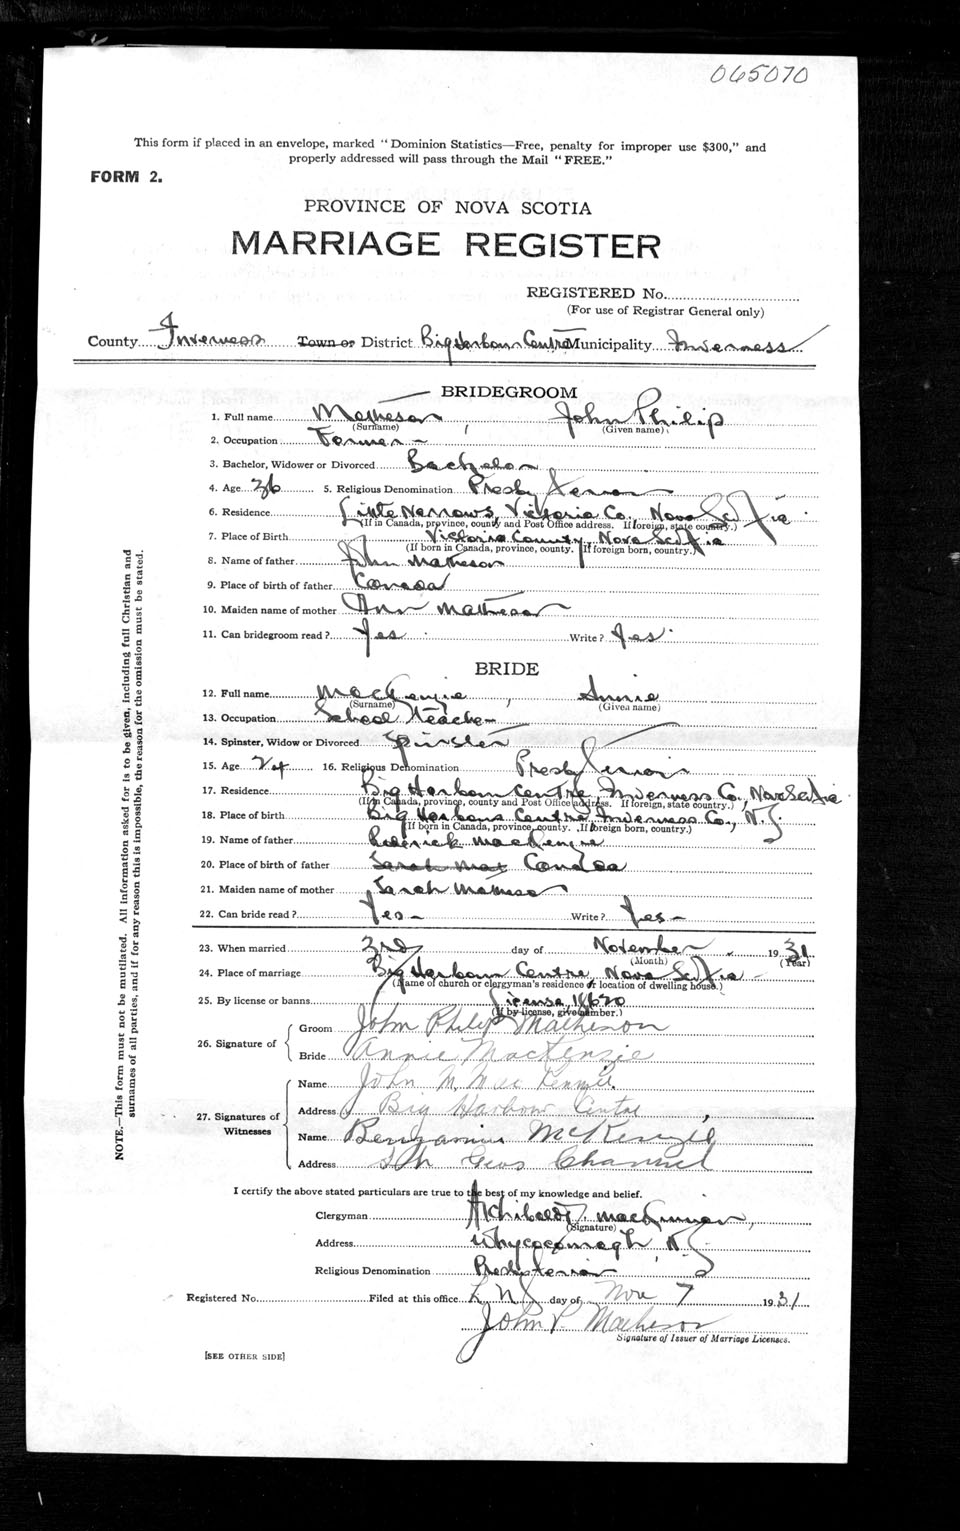 065070
This form if placed in an envelope, marked "Dominion Statistics—Free, penalty for improper use $300," and
properly addressed will pass through the Mail "FREE."
FORM 2.
PROVINCE OF NOVA SCOTIA
MARRIAGE REGISTER
REGISTERED No.
(For use of Registrar General only)
County Inverness Town or District Big Harbour Centre Municipality Inverness
BRIDEGROOM
1. Full name Matheson, John Philip
(Surname) (Given name)
2. Occupation Farmer
3. Bachelor, Widower or Divorced Bachelor
4. Age 36 5. Religious Denomination Presbyterian
6. Residence Little Narrows, Victoria Co., Nova Scotia
(If in Canada, province, county and Post Office address. If foreign, state country.)
7. Place of Birth Victoria County, Nova Scotia
(If born in Canada, province, county. If foreign born, country.)
8. Name of father John Matheson
9. Place of birth of father Canada
10. Maiden name of mother Ann Matheson
11. Can bridegroom read? Yes Write? Yes
BRIDE
12. Full name MacKenzie, Annie
(Surname) (Given name)
13. Occupation School Teacher
14. Spinster, Widow or Divorced Spinster
15. Age 24 16. Religious Denomination Presbyterian
17. Residence Big Harbour Centre, Inverness Co., Nova Scotia
(If in Canada, province, county and Post Office address. If foreign, state country.)
18. Place of birth Big Harbour Centre, Inverness Co., N.S.
(If born in Canada, province, county. If foreign born, country.)
19. Name of father Roderick MacKenzie
20. Place of birth of father Sarah Mat Canada
21. Maiden name of mother Sarah Matheson
22. Can bride read? Yes Write? Yes
23. When married 3rd day of November 1931
(Month) (Year)
24. Place of marriage Big Harbour Centre, Nova Scotia
(Name of church or clergyman's residence or location of dwelling house.)
25. By license or banns License, 18620
(If by license, give number.)
26. Signature of
Groom John Philip Matheson
Bride Annie MacKenzie
27. Signatures of Witnesses
Name John M. MacKenzie
Address Big Harbour Centre,
Name Benjamin McKenzie
Address Sth Geos Channel
I certify the above stated particulars are true to the best of my knowledge and belief.
Clergyman Archibald MacKinnon,
(Signature)
Address Whycocomagh, N.S.
Religious Denomination Presbyterian
Registered No. Filed at this office L. N. day of Nov 7 1931
John P. Matheson
Signature of Issuer of Marriage Licenses.
[SEE OTHER SIDE]
NOTE.—This form must not be mutilated. All information asked for is to be given, including full Christian and
surnames of all parties, and if for any reason this is impossible, the reason for the omission must be stated.